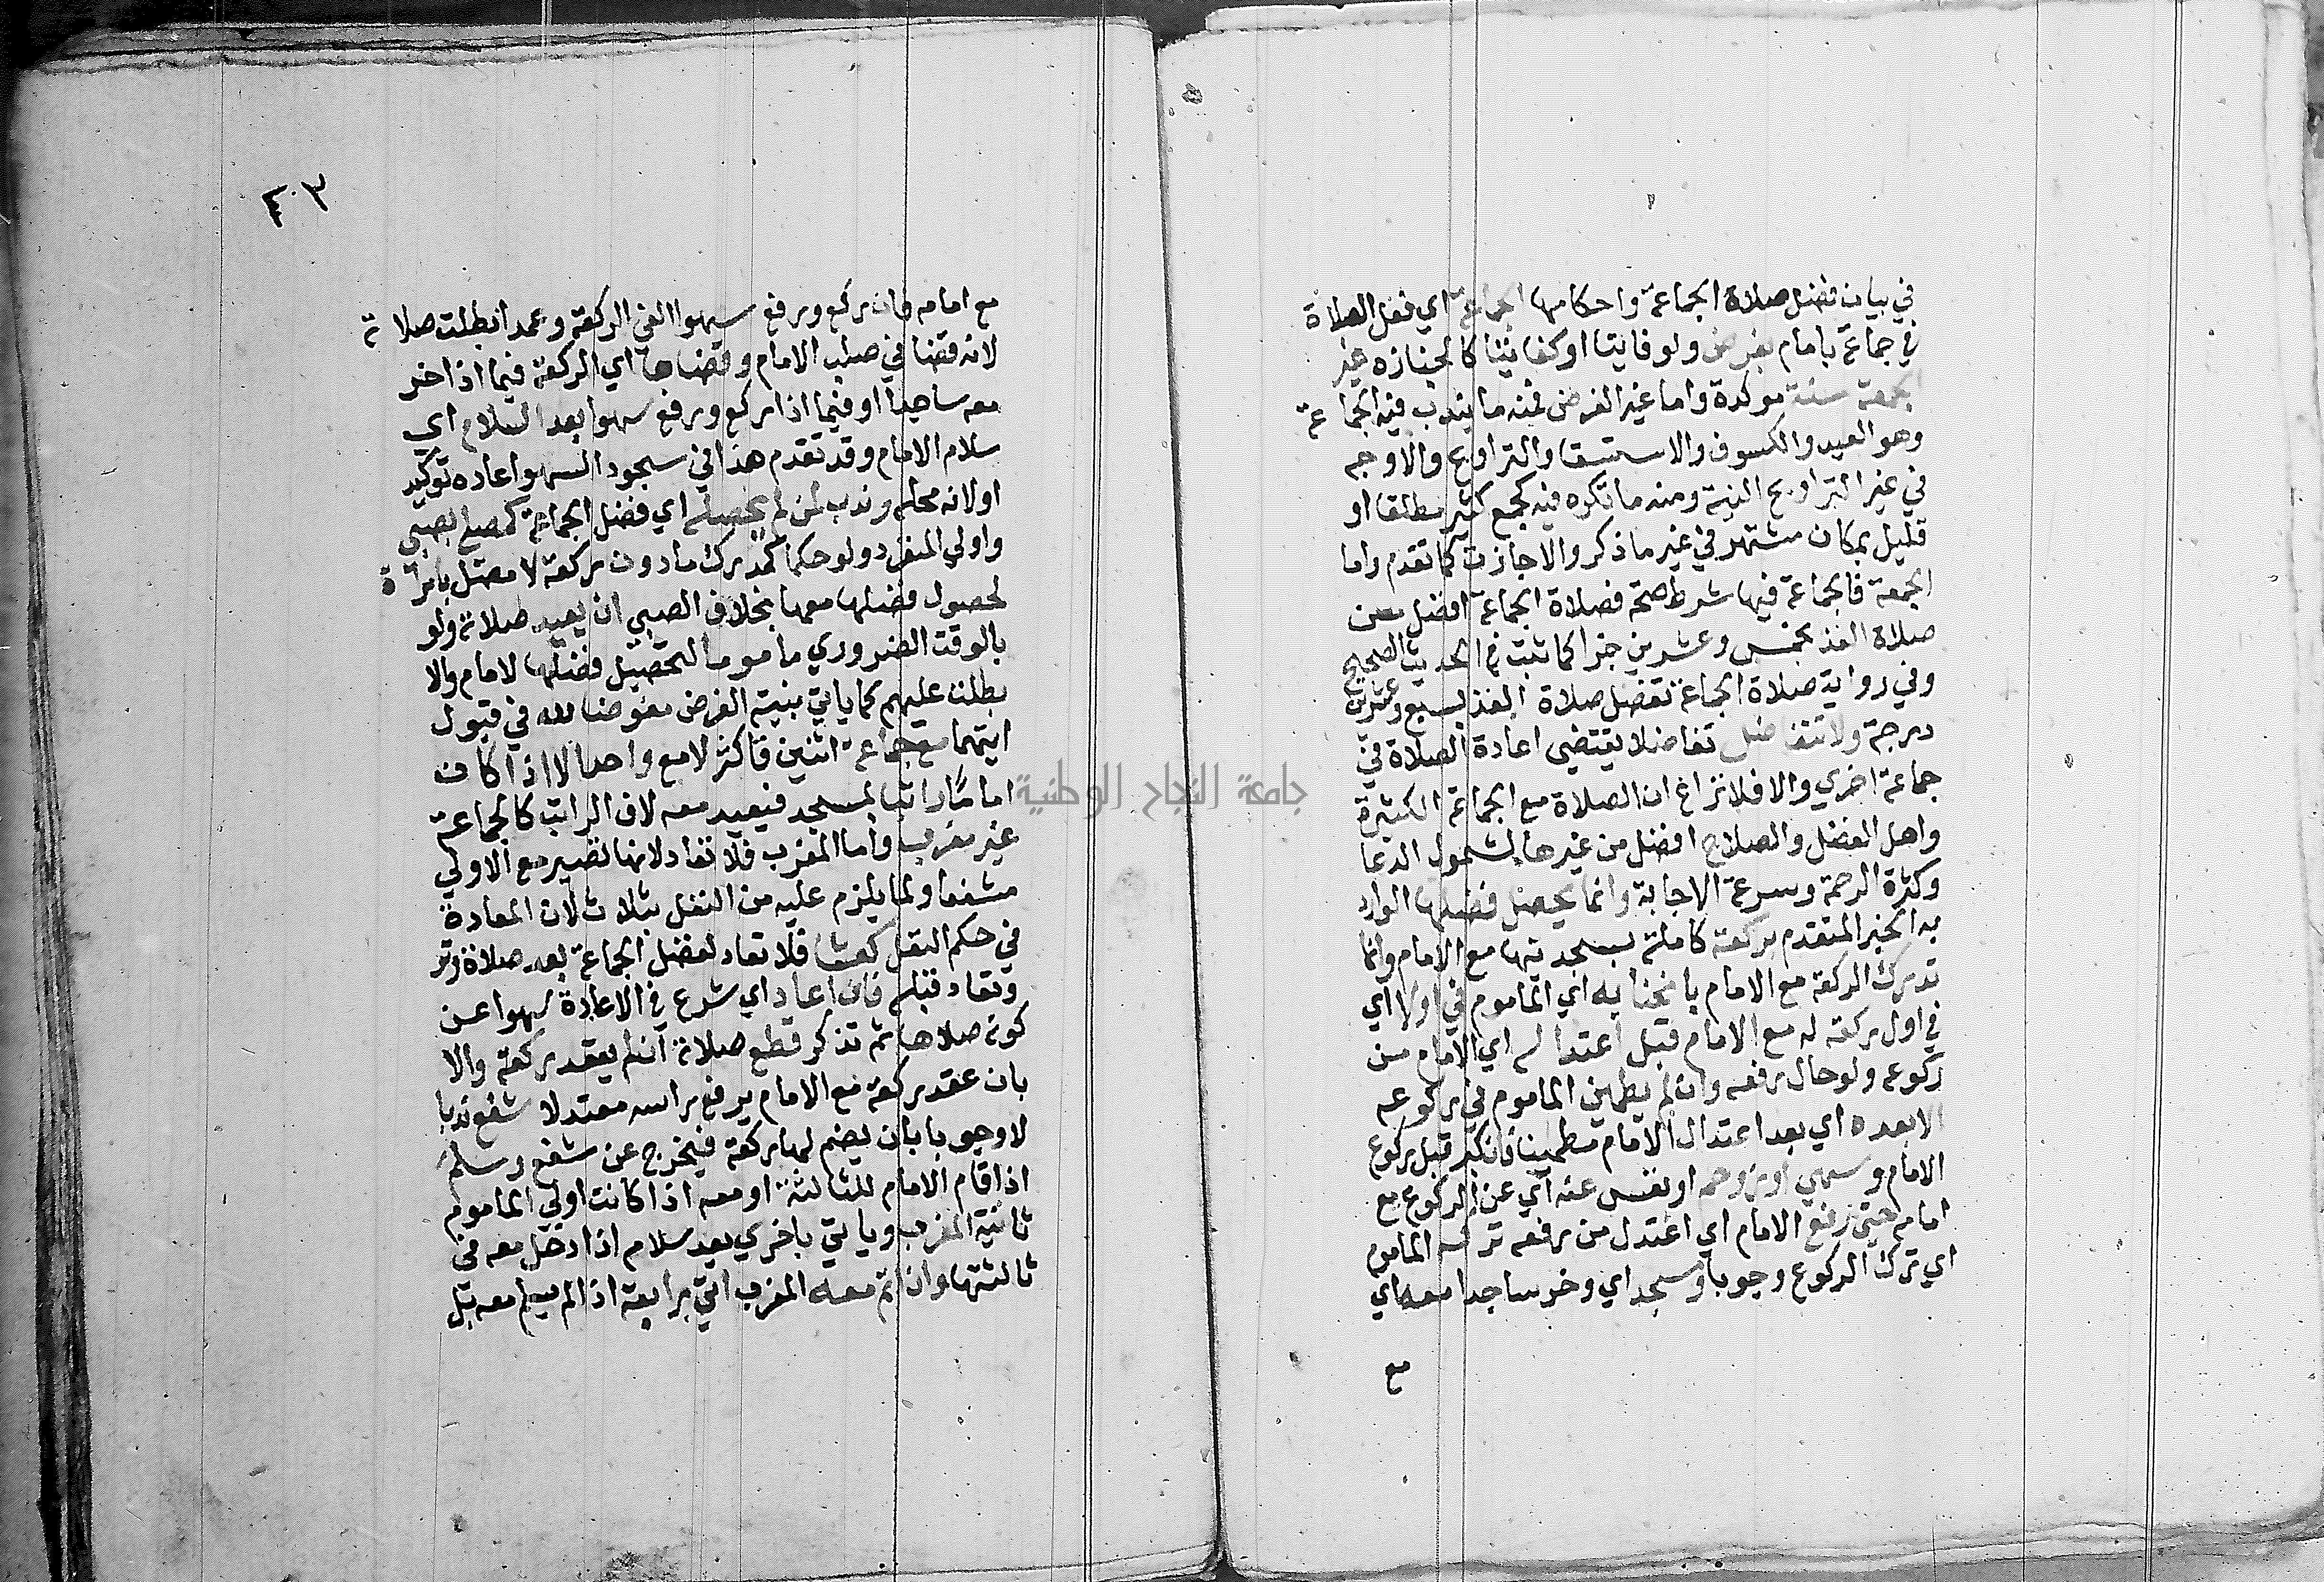 في بيان فضل صلاة الجماعة واحكامها الجماعة اي فعل الصلاة
في جماعة بامام بفرض ولو فايتا او كفايئا كالجنازه غير
الجمعة سنة موكدة واما غير الفرض فمنه ما يندب فيه الجماعة
وهو العيد والكسوف والاستسقا والتراويح والاوجه
في غير التراويح النية ومنه ما تكره فيه كجمع كثير مطلقا او
قليل بمكان مشتهر في غير ما ذكر والا جازت كما تقدم واما
الجمعة فالجماعة فيها شرط صحة فصلاة الجماعة افضل من
صلاة الفذ بخمس وعشرين جزا كما ثبت في الحديث الصحيح
وفي رواية صلاة الجماعة تفضل صلاة الفذ بسبع وعشرين
درجة ولا تتفاضل تفاضلا يقتضي اعادة الصلاة في
جماعة اخري والا فلا نزاع ان الصلاة مع الجماعة الكثيرة
واهل الفضل والصلاح افضل من غيرها لشمول الدعا
وكثرة الرحمة وسرعة الاجابة وانما يحصل فضلها الوارد
به الخبر المتقدم بركعة كاملة بسجدتيها مع الامام وانما
تدرك الركعة مع الامام بانحنائه اي الماموم في اولا اي
في اول ركعة له مع الامام قبل اعتداله اي الامام من
ركوعه ولو حال رفعه وان لم يطمين الماموم في ركوعه
الا بعده اي بعد اعتدال الامام مطمينا فان كبر قبل ركوع
الامام وسهي او زوحم او نعس عنه اي عن الركوع مع
امامه حتى رفع الامام اي اعتدل من رفعه تركه الماموم
اي ترك الركوع وجوبا وسجد اي وخر ساجدا معه اي
مع
٣٠٤
مع امامه فان ركع ورفع سهوا الغي الركعة وعمدا بطلت صلاته
لانه قضا في صلب الامام وقضاها اي الركعة فيما اذا خر
معه ساجدا او فيما اذا ركع ورفع سهوا بعد السلام اي
سلام الامام وقد تقدم هذا في سجود السهو اعاده توكيد
او لانه محله وندب لمن لم يحصله اي فضل الجماعة كمصل بصبي
واولي المنفرد ولو حكما كمدرك ما دون ركعة لا مصل بامراة
لحصول فضلها معها بخلاف الصبي ان يعيد صلاته ولو
بالوقت الضروري ماموما لتحصيل فضلها لا امام والا
بطلت عليهم كما ياتي بنية الفرض مفوضا لله في قبول
ايتهما مع جماعة اثنين فاكثر لا مع واحد الا اذا كان
اماما راتبا بمسجد فيعيد معه لان الراتب كالجماعة
غير مغرب واما المغرب فلا تعاد لانها تصير مع الاولي
مشفعا ولما يلزم عليه من النفل بثلاث لان المعادة
في حكم النفل كعشا فلا تعاد لفضل الجماعة بعد صلاة وتر
وتعاد قبله فان اعاد اي شرع في الاعادة سهوا عن
كونه صلاها ثم تذكر قطع صلاته ان لم يعقد ركعة والا
بان عقد ركعة مع الامام برفع راسه معتدلا شفع ندبا
لا وجوبا بان يضم لها ركعة فيخرج عن شفع وسلم
اذا قام الامام للثالثة او معه اذا كانت اولي الماموم
ثانية المغرب وياتي باخري بعد سلامه اذا دخل معه في
ثالثتها وان اتم معه المغرب اتي برابعة اذا لم يسلم معه بل
جامعة النجاح الوطنية